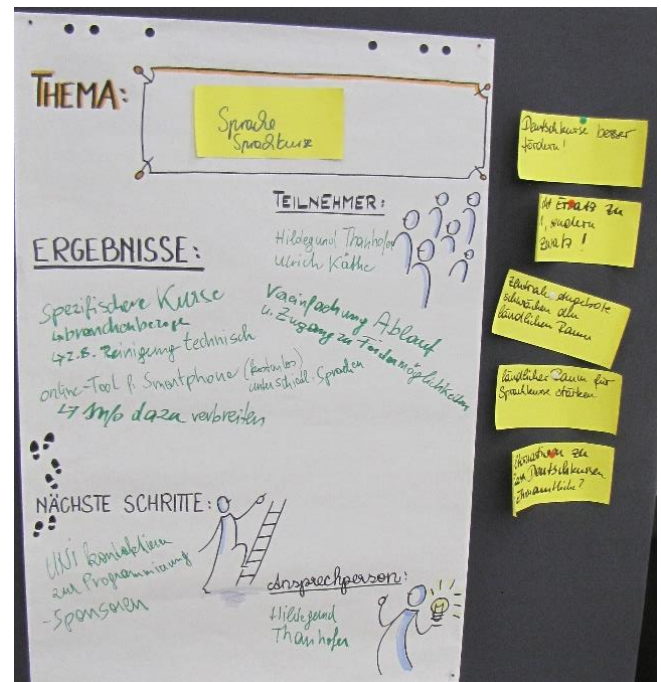 THEMA:
Sprache
Sprachkurse
TEILNEHMER:
Hildegund Thanhofer
Ulrich Käthe
ERGEBNISSE:
Spezifischere Kurse
↳ branchenbezogen
↳ z.B. Reinigung technisch
online-Tool f. Smartphone (kostenlos)
unterschiedl. Sprachen
↳ Info dazu verbreiten
Vereinfachung Ablauf
u. Zugang zu Fördermöglichkeiten
NÄCHSTE SCHRITTE:
UNI kontaktieren
zur Programmierung
- Sponsoren
Ansprechperson:
Hildegund
Thanhofer
Deutschkurse besser
fördern!
Ersatz zu
!, sondern
zentrale Angebote
schwächen den
ländlichen Raum
ländlicher Raum für
Sprachkurse stärken
zu
Deutschkursen
Ehrenamtliche?